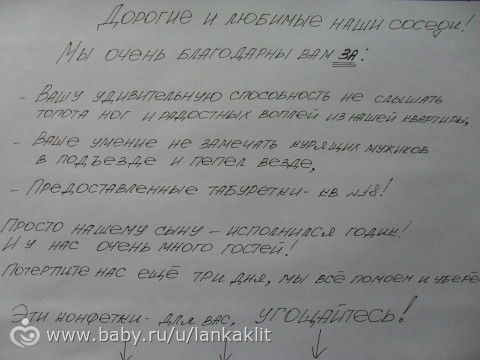 Дорогие и любимые наши соседи!
Мы очень благодарны вам за:
- Вашу удивительную способность не слышать
топота ног и радостных воплей из нашей квартиры,
- Ваше умение не замечать курящих мужиков
в подъезде и пепел везде,
- Предоставленные табуретки - кв. №18!
Просто нашему сыну - исполнился годик!
И у нас очень много гостей!
Потерпите нас ещё три дня, мы всё помоем и уберё
Эти конфетки - для вас, угощайтесь!
www.baby.ru/u/lankaklit